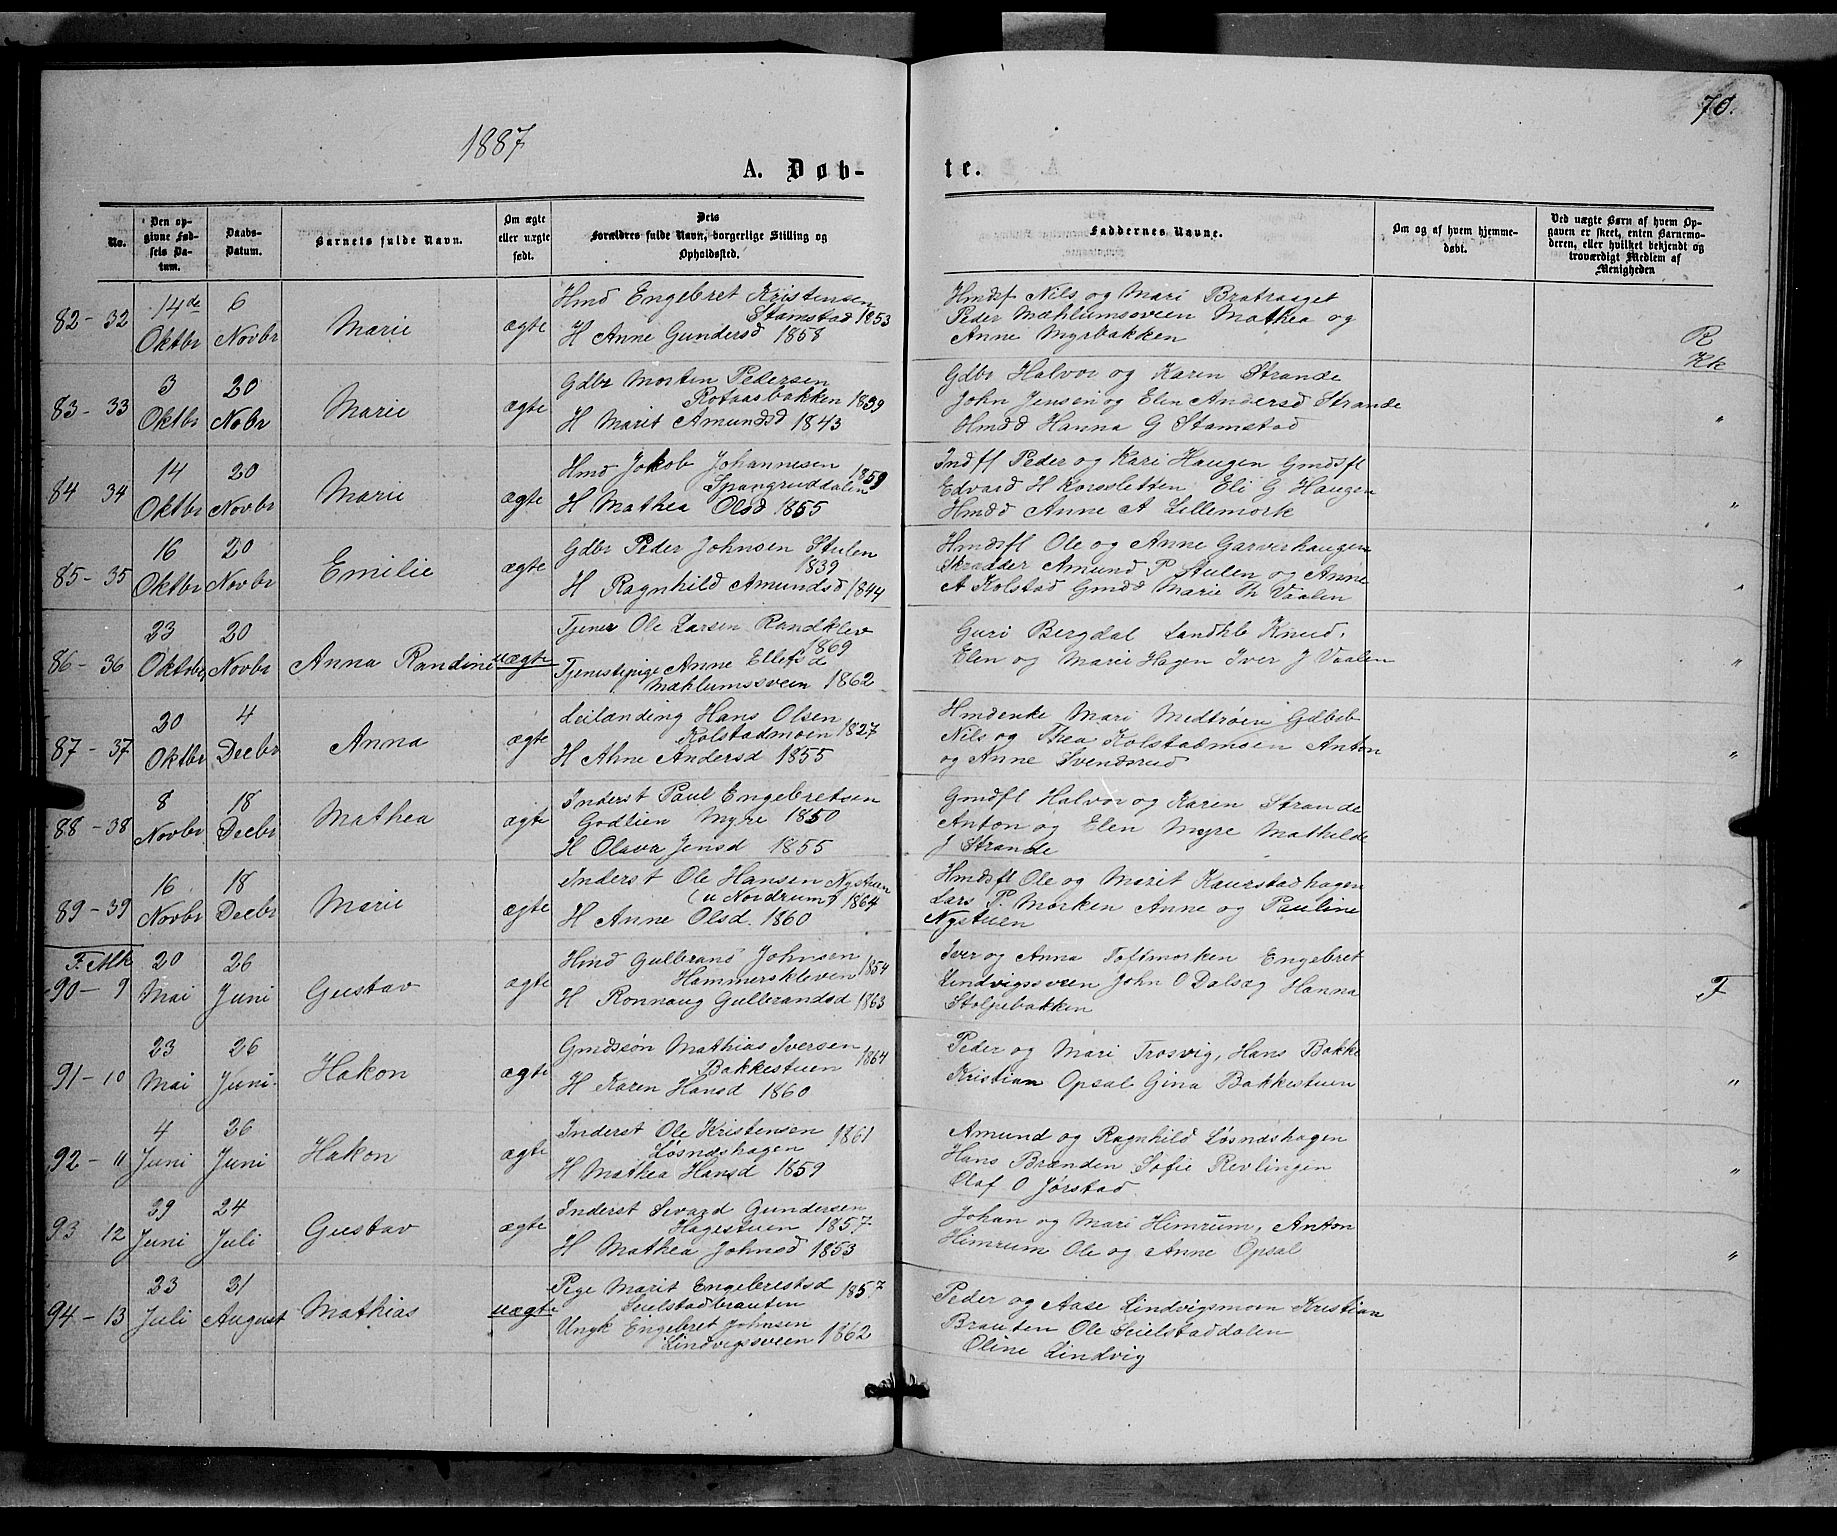 70.
1887
A. Døb-
te.
No.
Den op-
givne Fød-
sels Da-
tum.
Daabs-
Datum.
Barnets fulde Navn.
Om ægte
eller uægte
født.
Dets
Forældres fulde Navn, borgerlige Stilling og
Opholdssted.
Faddernes Navne.
Om og af hvem hjemme-
døbt.
Ved uægte Børn af hvem Op-
gaven er skeet, enten Barnemo-
deren, eller hvilket bekjendt og
troværdigt Medlem af
Menigheden
82-32
14de
Oktbr
6
Novbr
Marie
ægte
Hmd Engebret Kristensen
Stamstad 1853
H Anne Gundersd 1858
Hmdsf Nils og Mari Bratvaaget
Peder Mæhlumsveen Mathea og
Anne Myrbakken
R
Kk
83-33
3
Oktbr
20
Nobr
Marie
ægte
Gdbr Morten Pedersen
Rotaasbakken 1839
H Marit Amundsd 1843
Gdbr Halvor og Karen Strande
John Jensen og Elen Andersd Strande
Hmdd Hanna G Stamstad
"
84 34
14
Oktbr
20
Novbr
Marie
ægte
Hmd Jokob Johannesen
Spangruddalen 1859
H Mathea Olsd 1855
Indfl Peder og Kari Haugen Gmdsfl
Edvard H Korssletten Eli G Haugen
Hmdd Anne A Lillemork
"
85-35
16
Oktbr
20
Novbr
Emilie
ægte
Gdbr Peder Johnsen Stulen
1839
H Ragnhild Amundsd 1844
Hmdsfl Ole og Anne Garverhaugen
Skrædder Amund P Stulen og Anne
A Kolstad Gmdd Marie Th Vaalen
"
86-36
23
Oktbr
20
Novbr
Anna Randine
uægte
Tjener Ole Larsen Randklev
1869
Tjenestepige Anne Ellefsd
Mæhlumssveen 1862
Guri Bergdal Landhb Knud,
Elen og Marie Hagen Iver J Vaalen
"
87-37
20
Oktbr
4
Decbr
Anna
ægte
Leilænding Hans Olsen
Kolstadmoen 1827
H Ahne Andersd 1855
Hmdenke Mari Medtrøen Gdbeb
Nils og Thea Kolstadmoen Anton
og Anne Svendsrud
"
88-38
8
Novbr
18
Decbr
Mathea
ægte
Inderst Paul Engebretsen
Godlien Myre 1850
H Olava Jensd 1855
Gmdfl Halvor og Karen Strande
Anton og Elen Myre Mathilde
J Strande
89-39
16
Novbr
18
Decbr
Marie
ægte
Inderst Ole Hansen Nystuen
(u Nordrum) 1864
H Anne Olsd. 1860
Hmdsfl Ole og Marit Kaurstadhagen
Lars P. Morken Anne og Pauline
Nystuen
F. Mk
90-9
20
Mai
26
Juni
Gustav
ægte
Hmd Gulbrand Johnsen
Hammerskleven 1854
H Ronnaug Gulbrandsd 1863
Iver og Anna Toftmorken Engebret
Lindvigssveen John O Dalseg Hanna
Stolpebakken
F
91-10
23
Mai
26
Juni
Hakon
ægte
Gmdssøn Mathias Iversen
Bakkestuen 1864
H Karen Hansd 1860
Peder og Mari Trosvig, Hans Bakke
Kristian Opsal Gina Bakkestuen
"
92-11
4
Juni
26
Juni
Hakon
ægte
Inderst Ole Kristensen 1861
Løsnæshagen
H Mathea Hansd 1859
Amund og Ragnhild Løsnæshagen
Hans Brænden Sofie Revlingen
Olaf O Jørstad
"
93 12
29
Juni
24
Juli
Gustav
ægte
Inderst Sevard Gundersen
Hagestuen 1857
H Mathea Johnsd 1853
Johan og Mari Himrum, Anton
Himrum Ole og Anne Opsal
"
94-13
23
Juli
31
August
Mathias
uægte
Pige Marit Engebretsd 1857
Seielstadbrauten
Ungk Engebret Johnsen
Lindvigssveen 1862
Peder og Aase Lindvigsmoen Kristian
Brauten Ole Seielstaddalen
Oline Lindvig